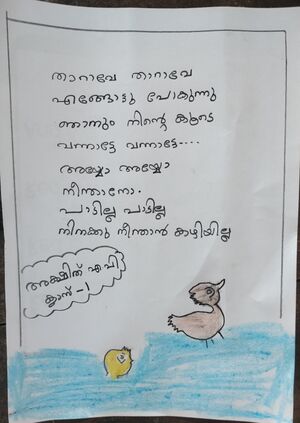 താറാവേ താറാവേ
എങ്ങോട്ടു പോകുന്നു
ഞാനും നിന്റെ കൂടെ
വന്നാട്ടേ വന്നാട്ടേ....
അയ്യോ അയ്യോ
നീന്താനോ.
പാടില്ല പാടില്ല
നിനക്കു നീന്താൻ കഴിയില്ല
അക്ഷിത് എ വി
ക്ലാസ് -1